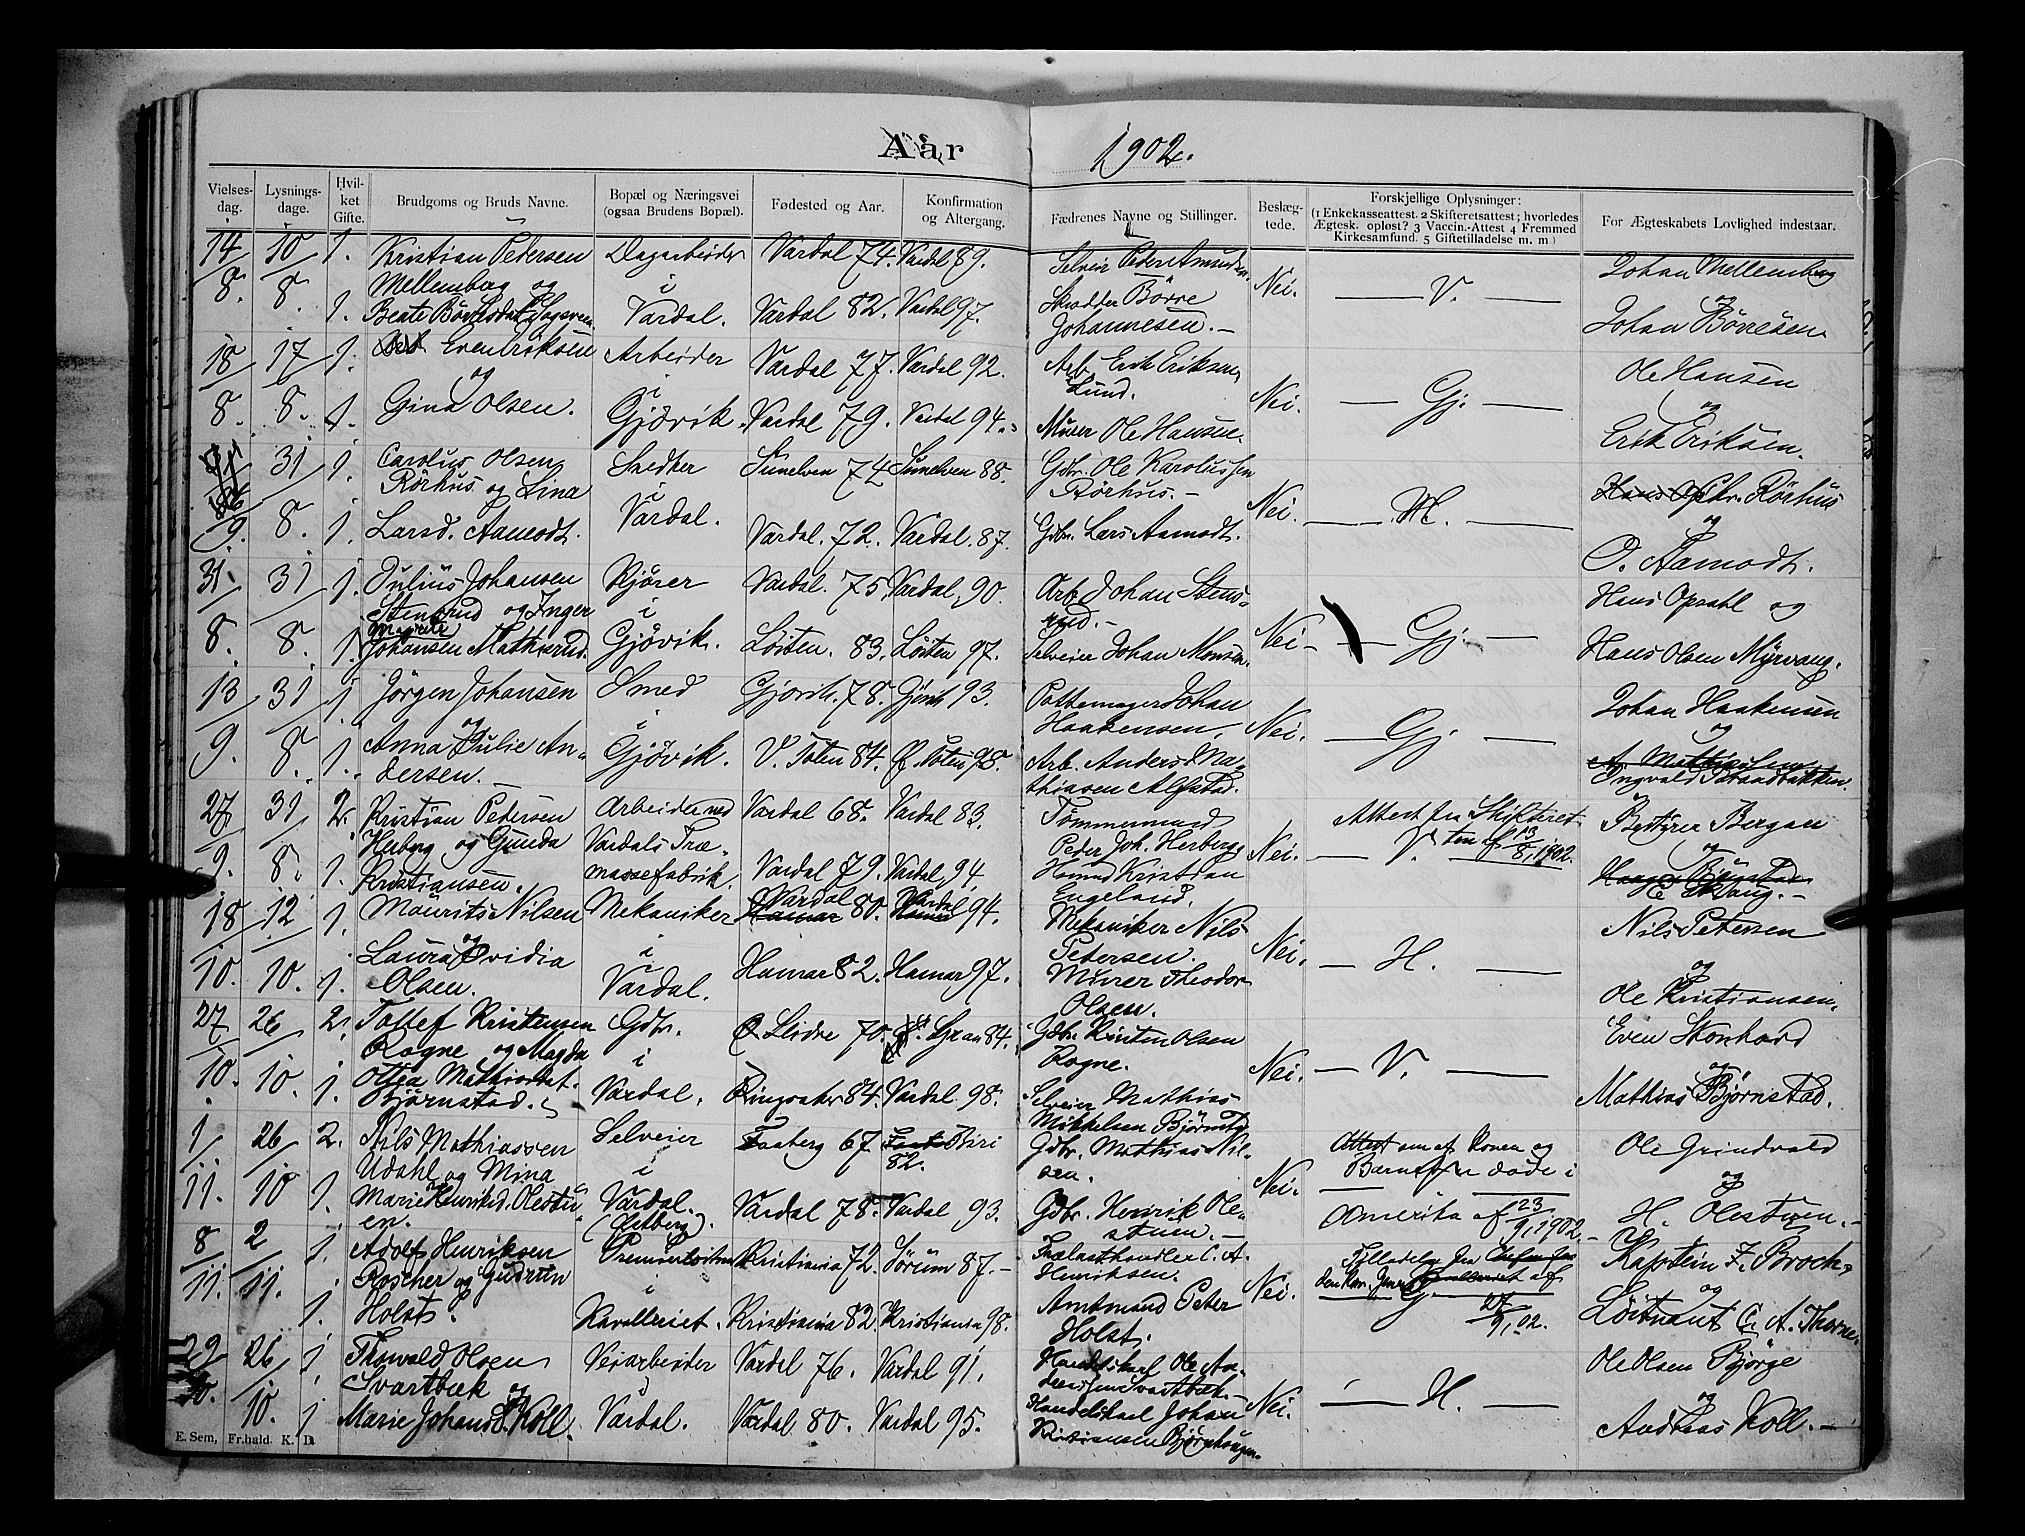 Aar 1902.
Vielses-dag. Lysnings-dage. Hvil-ket Gifte. Brudgoms og Bruds Navne. Bopæl og Næringsvei (ogsaa Brudens Bopæl). Fødested og Aar. Konfirmation og Altergang. Fædrenes Navne og Stillinger. Beslæg-tede. Forskjellige Oplysninger: (1 Enkekasseattest. 2 Skifteretsattest; hvorledes Ægtesk. opløst? 3 Vaccin.-Attest 4 Fremmed Kirkesamfund. 5 Giftetilladelse m. m.) For Ægteskabets Lovlighed indestaar.
14 10 1. Kristian Pedersen Dagarbeider Vardal 74. Vardal 89. Selveier Peder Amundsen Johan Mellemberg
Mellemberg og i Nei. V. og
8. 8. 1. Beate Vardal. Vardal 82. Vardal 97. Skrædder Børre Johan Børresen
Johannesen.
18 17 1. Even Eriksen Arbeider Vardal 77. Vardal 92. Arb. Erik Eriksen Ole Hansen
og i Lund. Nei. Gj. og
8. 8. 1. Gina Olsen. Gjøvik. Vardal 79. Vardal 94. Murer Ole Hansen. Erik Eriksen.
31 1. Carolus Olsen Snedker Sunelven 74 Sunelven 88. Gdbr. Ole Karolussen Chr. Rörhus
Rörhus og Lina i Rørhus. Nei. M. og
9. 8. 1. Larsd. Aamodt. Vardal. Vardal. 72. Vardal. 87. Gdbr. Lars Aamodt. O. Aamodt.
31. 31 1. Julius Johansen Kjører Vardal. 75. Vardal. 90. Arb. Johan Stens- Hans Opsahl og
Stensrud og Inger i rud. Nei Gj.
Magrete
8. 8. 1. Johansen Mathisrud. Gjøvik. Løiten. 83. Løiten 97. Selveier Johan Monsen Hans Olsen Myrvang.
13 31 1. Jörgen Johansen Smed Gjøvik. 78. Gjøvik 93. Pottemager Johan Johan Haakensen
og i Haakensen. Nei. Gj og
9. 8. 1. Anna Julie An- Gjøvik. V. Toten 84. V. Toten 98. Arb. Anders Ma- A. Mathiasen
dersen. thiasen Alfstad. Ingvald Strandbakken.
27 31 2. Kristian Pedersen Arbeider ved Vardal 68. Vardal 83. Tømmermand Attest fra Skifteret- Bestyrer Bergan
Herberg og Gunda Vardals Træ- Peder Joh. Herberg Nei. V. ten af 13/8, 1902. og
9. 8. 1. Kristiansen. massefabrik. Vardal 79. Vardal 94. Kristian Engeland.
18 12 1. Maurits Nilsen Mekaniker Vardal 80. Vardal 94. Mekaniker Nils Nils Petersen
og i Petersen. Nei. H. og
10. 10. 1. Laura Ovidia Olsen. Vardal. Hamar 82. Hamar 97. Murer Theodor Olsen. Ole Kristiansen.
27 26 2. Tollef Kristensen Gdbr. Ø. Slidre 70. Gran 84. Gdbr. Kristen Olsen Even Stenhard
Rogne og Magda i Rogne. Nei. V. og
10. 10. 1. Mathiasdat. Vardal. Ringsaker 84. Vardal 98. Selveier Mathias Mathias Bjørnstad.
Bjørnstad. Mikkelsen Bjørnstad
1 26 2. Nils Mathiassen Selveier Faaberg 67. Biri 82. Gdbr. Mathias Nil- Attest om at Konen og Ole Grindvold
Udahl og Mina i sen. Nei. døde i og
11. 10 1. Marie Henriksd. Olestu- Vardal. Vardal 78. Vardal 93. Gdbr. Henrik Ole- Amerika af 23/9, 1902. H. Olestuen.
en. stuen.
8 2 1. Adolf Henriksen Kristiania 72. Sørum 87. Trælasthandler C. A. Kaptein F. Broch
Roscher og Gudrun i Henriksen. Nei. og
11. 11. 1. Holst. Kavalleriet. Kristiania 82. Kristiania 98. Amtmand Peter Holst. 27/9, 02. Löitnant C. A. Thorne.
29 26 1 Thorvald Olsen Veiarbeider Vardal 76. Vardal 91. Handelskarl Ole An- Ole Olsen Bjørge
Svartbæk og i Svartbæk. Nei. H. og
10. 10. 1 Marie Johansd. Koll. Vardal. Vardal 80. Vardal 95. Handelskarl Johan Andreas Koll.
Kristiansen
E. Sem, Fr.hald. K. D.